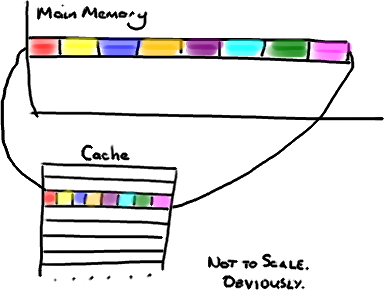 Main Memory
Cache
NOT TO SCALE.
OBVIOUSLY.